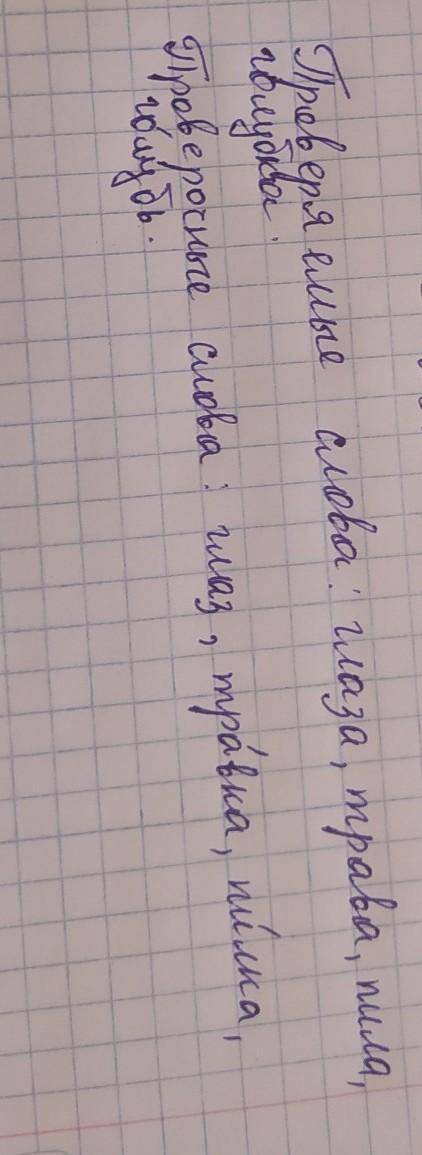 Проверяемые слова: глаза, трава, пила,
голубка.
Проверочные слова: глаз, тра́вка, пи́лка,
го́лубь.